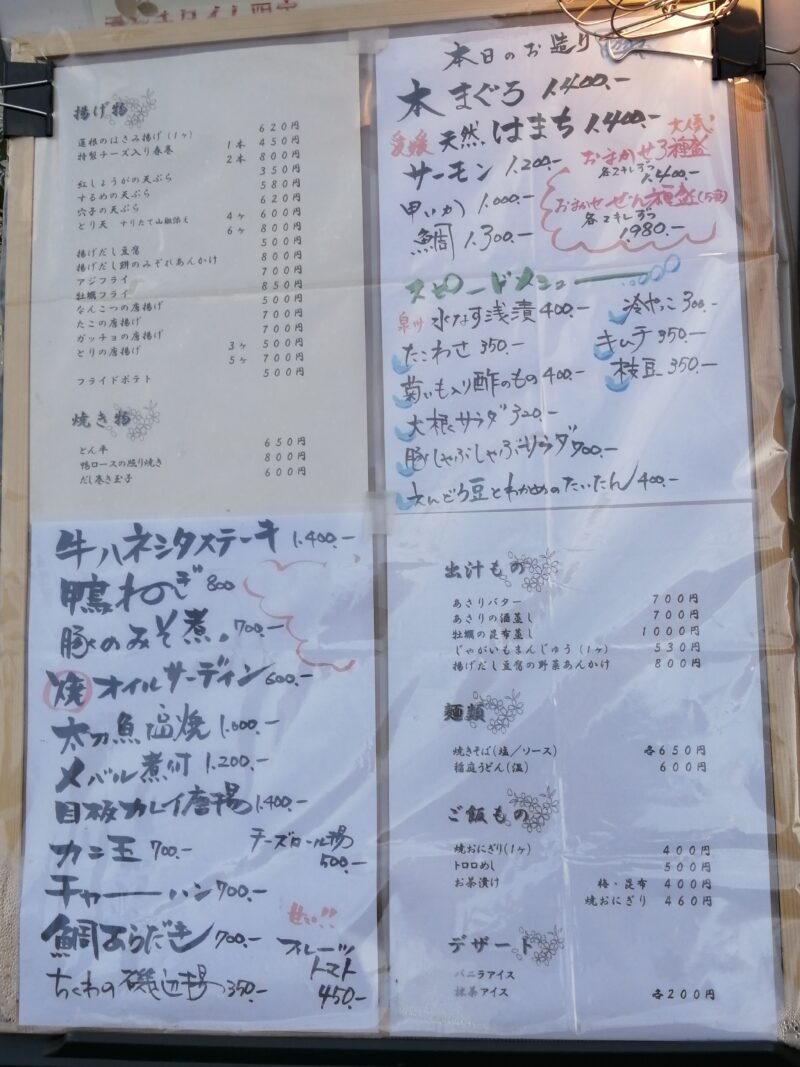 揚げ物
蓮根のはさみ揚げ(1ヶ) 620円
特製チーズ入り春巻 1本 450円
2本 800円
紅しょうがの天ぷら 350円
するめの天ぷら 580円
穴子の天ぷら 620円
とり天 すりたて山椒添え 4ヶ 600円
6ヶ 800円
揚げだし豆腐 500円
揚げだし餅のみぞれあんかけ 800円
アジフライ 700円
牡蠣フライ 850円
なんこつの唐揚げ 500円
たこの唐揚げ 700円
ガッチョの唐揚げ 700円
とりの唐揚げ 3ヶ 500円
5ヶ 700円
フライドポテト 500円
焼き物
とん平 650円
鴨ロースの照り焼き 800円
だし巻き玉子 600円
本日のお造り
本まぐろ 1.400.-
愛媛 天然はまち 1.400.-
サーモン 1.200.-
甲いか 1.000.-
鯛 1.300.-
大人気!
おまかせ3種盛
各2キレずつ
1.400.-
各2キレずつ
1.980.-
スピードメニュー
泉州 水なす浅漬 400.-
たこわさ 350.-
菊いも入り酢のもの 400.-
大根サラダ 320.-
豚しゃぶしゃぶサラダ 700.-
えんどう豆とわかめのたいたん 400.-
冷やっこ 300.-
キムチ 350.-
枝豆 350.-
牛ハネシタステーキ 1.400.-
鴨ねぎ 800
豚のみそ煮。 700.-
焼 オイルサーディン 600.-
太刀魚塩焼 1.000.-
メバル煮付 1.200.-
目板カレイ唐揚 1.400.-
カニ玉 700.-
チーズロール揚 500.-
チャーハン 700.-
鯛あらだき 700.-
ちくわの磯辺揚 350.-
甘〜い!!
フルーツ
トマト
450.-
出汁もの
あさりバター 700円
あさりの酒蒸し 700円
牡蠣の昆布蒸し 1000円
じゃがいもまんじゅう(1ヶ) 530円
揚げだし豆腐の野菜あんかけ 800円
麺類
焼きそば(塩/ソース) 各650円
稲庭うどん(温) 600円
ご飯もの
焼おにぎり(1ヶ) 400円
トロロめし 500円
お茶漬け 梅・昆布 400円
焼おにぎり 460円
デザート
バニラアイス
抹茶アイス 各200円